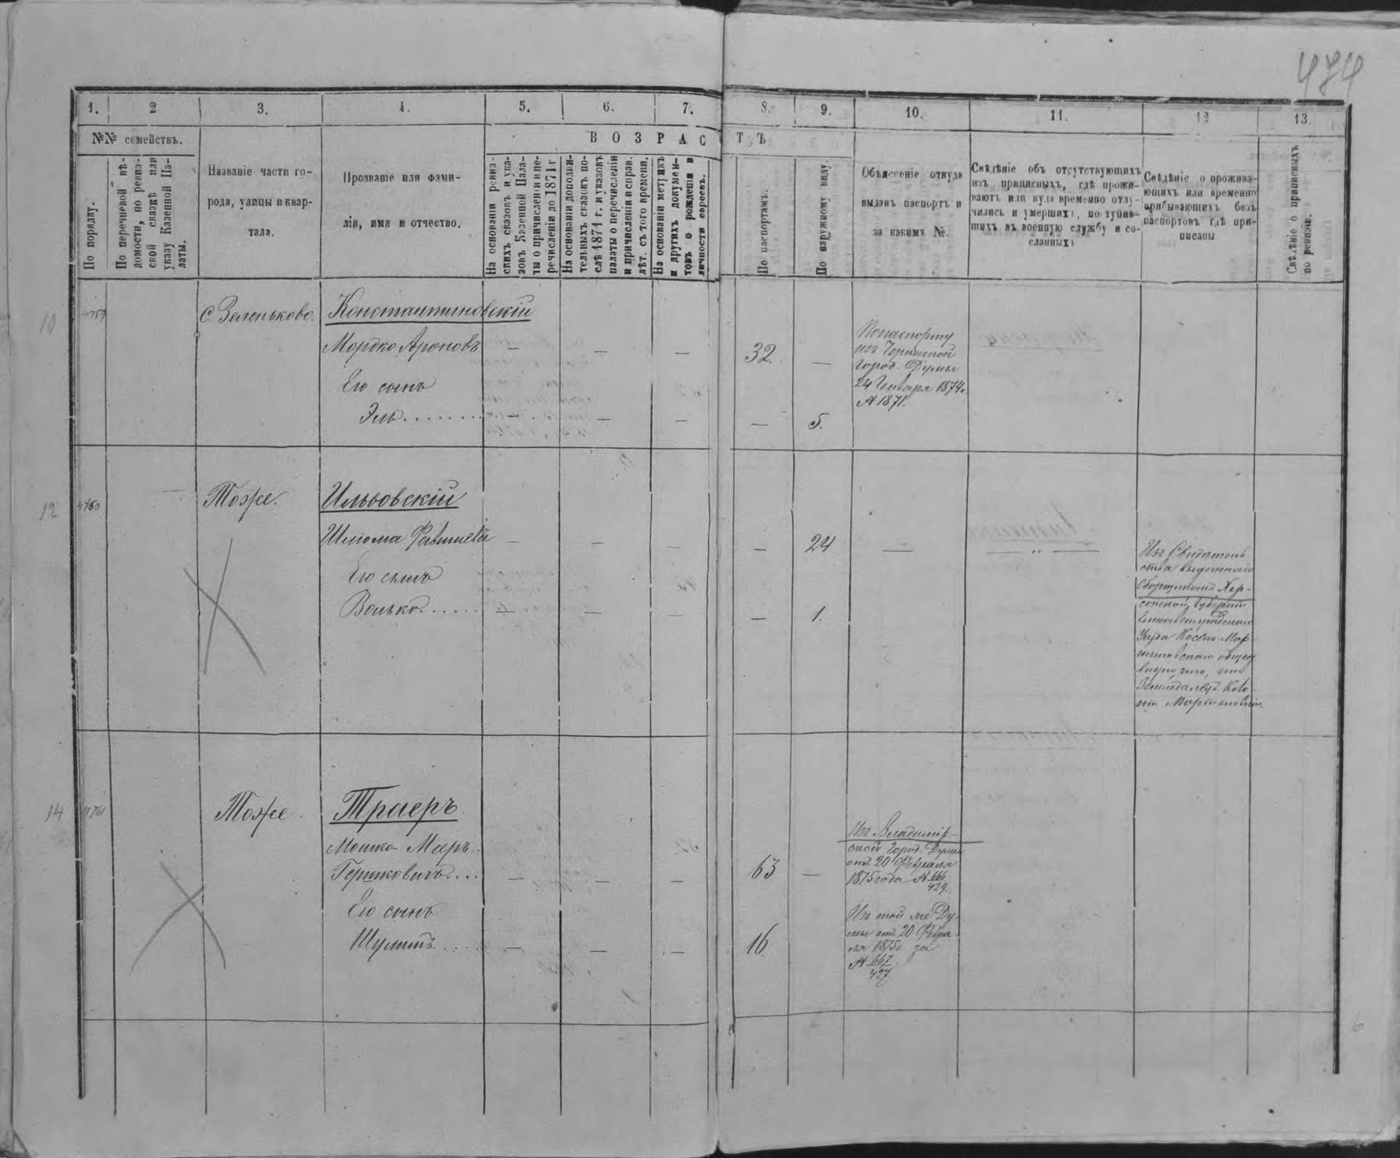 474
1. 2 3. 4. 5. 6. 7. 8. 9. 10. 11. 12 13
№№ семействъ.
По порядку.
По перечневой вѣ-
домости, по ревиз-
ской сказкѣ или
указу Казенной Па-
латы.
Названіе части го-
рода, улицы и квар-
тала.
Прозваніе или фами-
лія, имя и отчество.
ВОЗРАСТЪ
На основаніи ревиз-
скихъ сказокъ и ука-
зовъ Казенной Пала-
ты о причисленіи и пе-
речисленіи до 1874 г
На основаніи дополни-
тельныхъ сказокъ по-
слѣ 1874 г. и указовъ
палаты о перечисленіи
и причисленіи и справ.
лѣт. съ того времени.
На основаніи метрикъ
и другихъ докумен-
товъ о рожденіи и
личности евреевъ.
По паспортамъ.
По наружному виду
Объясненіе откуда
выданъ паспортъ и
за какимъ №.
Свѣдѣніе объ отсутствующихъ
изъ приписныхъ, гдѣ прожи-
ваютъ или куда временно отлу-
чились и умершихъ, поступив-
шихъ въ военную службу и со-
сланныхъ
Свѣдѣніе о прожива-
ющихъ или временно
прибывающихъ безъ
паспортовъ гдѣ при-
писаны
Свѣдѣніе о приписныхъ
по ревизіи.
10
С Зеленьково. Константиновскій
Мордко Ароновъ — — — 32. —
Его сынъ
Эль — — — — 5.
Попаспорту
изъ
Город. Думы
24 Января 1874г.
№ 1871.
12 4760 — Тоже. Ильвовскій
Шліома — — — — 24 — — „ —
Его сынъ
Волько — — — — 1.
Изъ Свидѣтель
ства выданнаго
Сборщикомъ Хер-
сонской Губерніи
14 Тоже. Траеръ
Мошко Мееръ
Гершковичъ — — — 63 —
Его сынъ
Шулимъ — — — 16
Изъ Владимір-
ской Город. Думы
отъ 20 Февраля
1875 года №
Изъ той же Ду-
мы отъ 20 Февра
ля 1875г за
№ 667/427
6